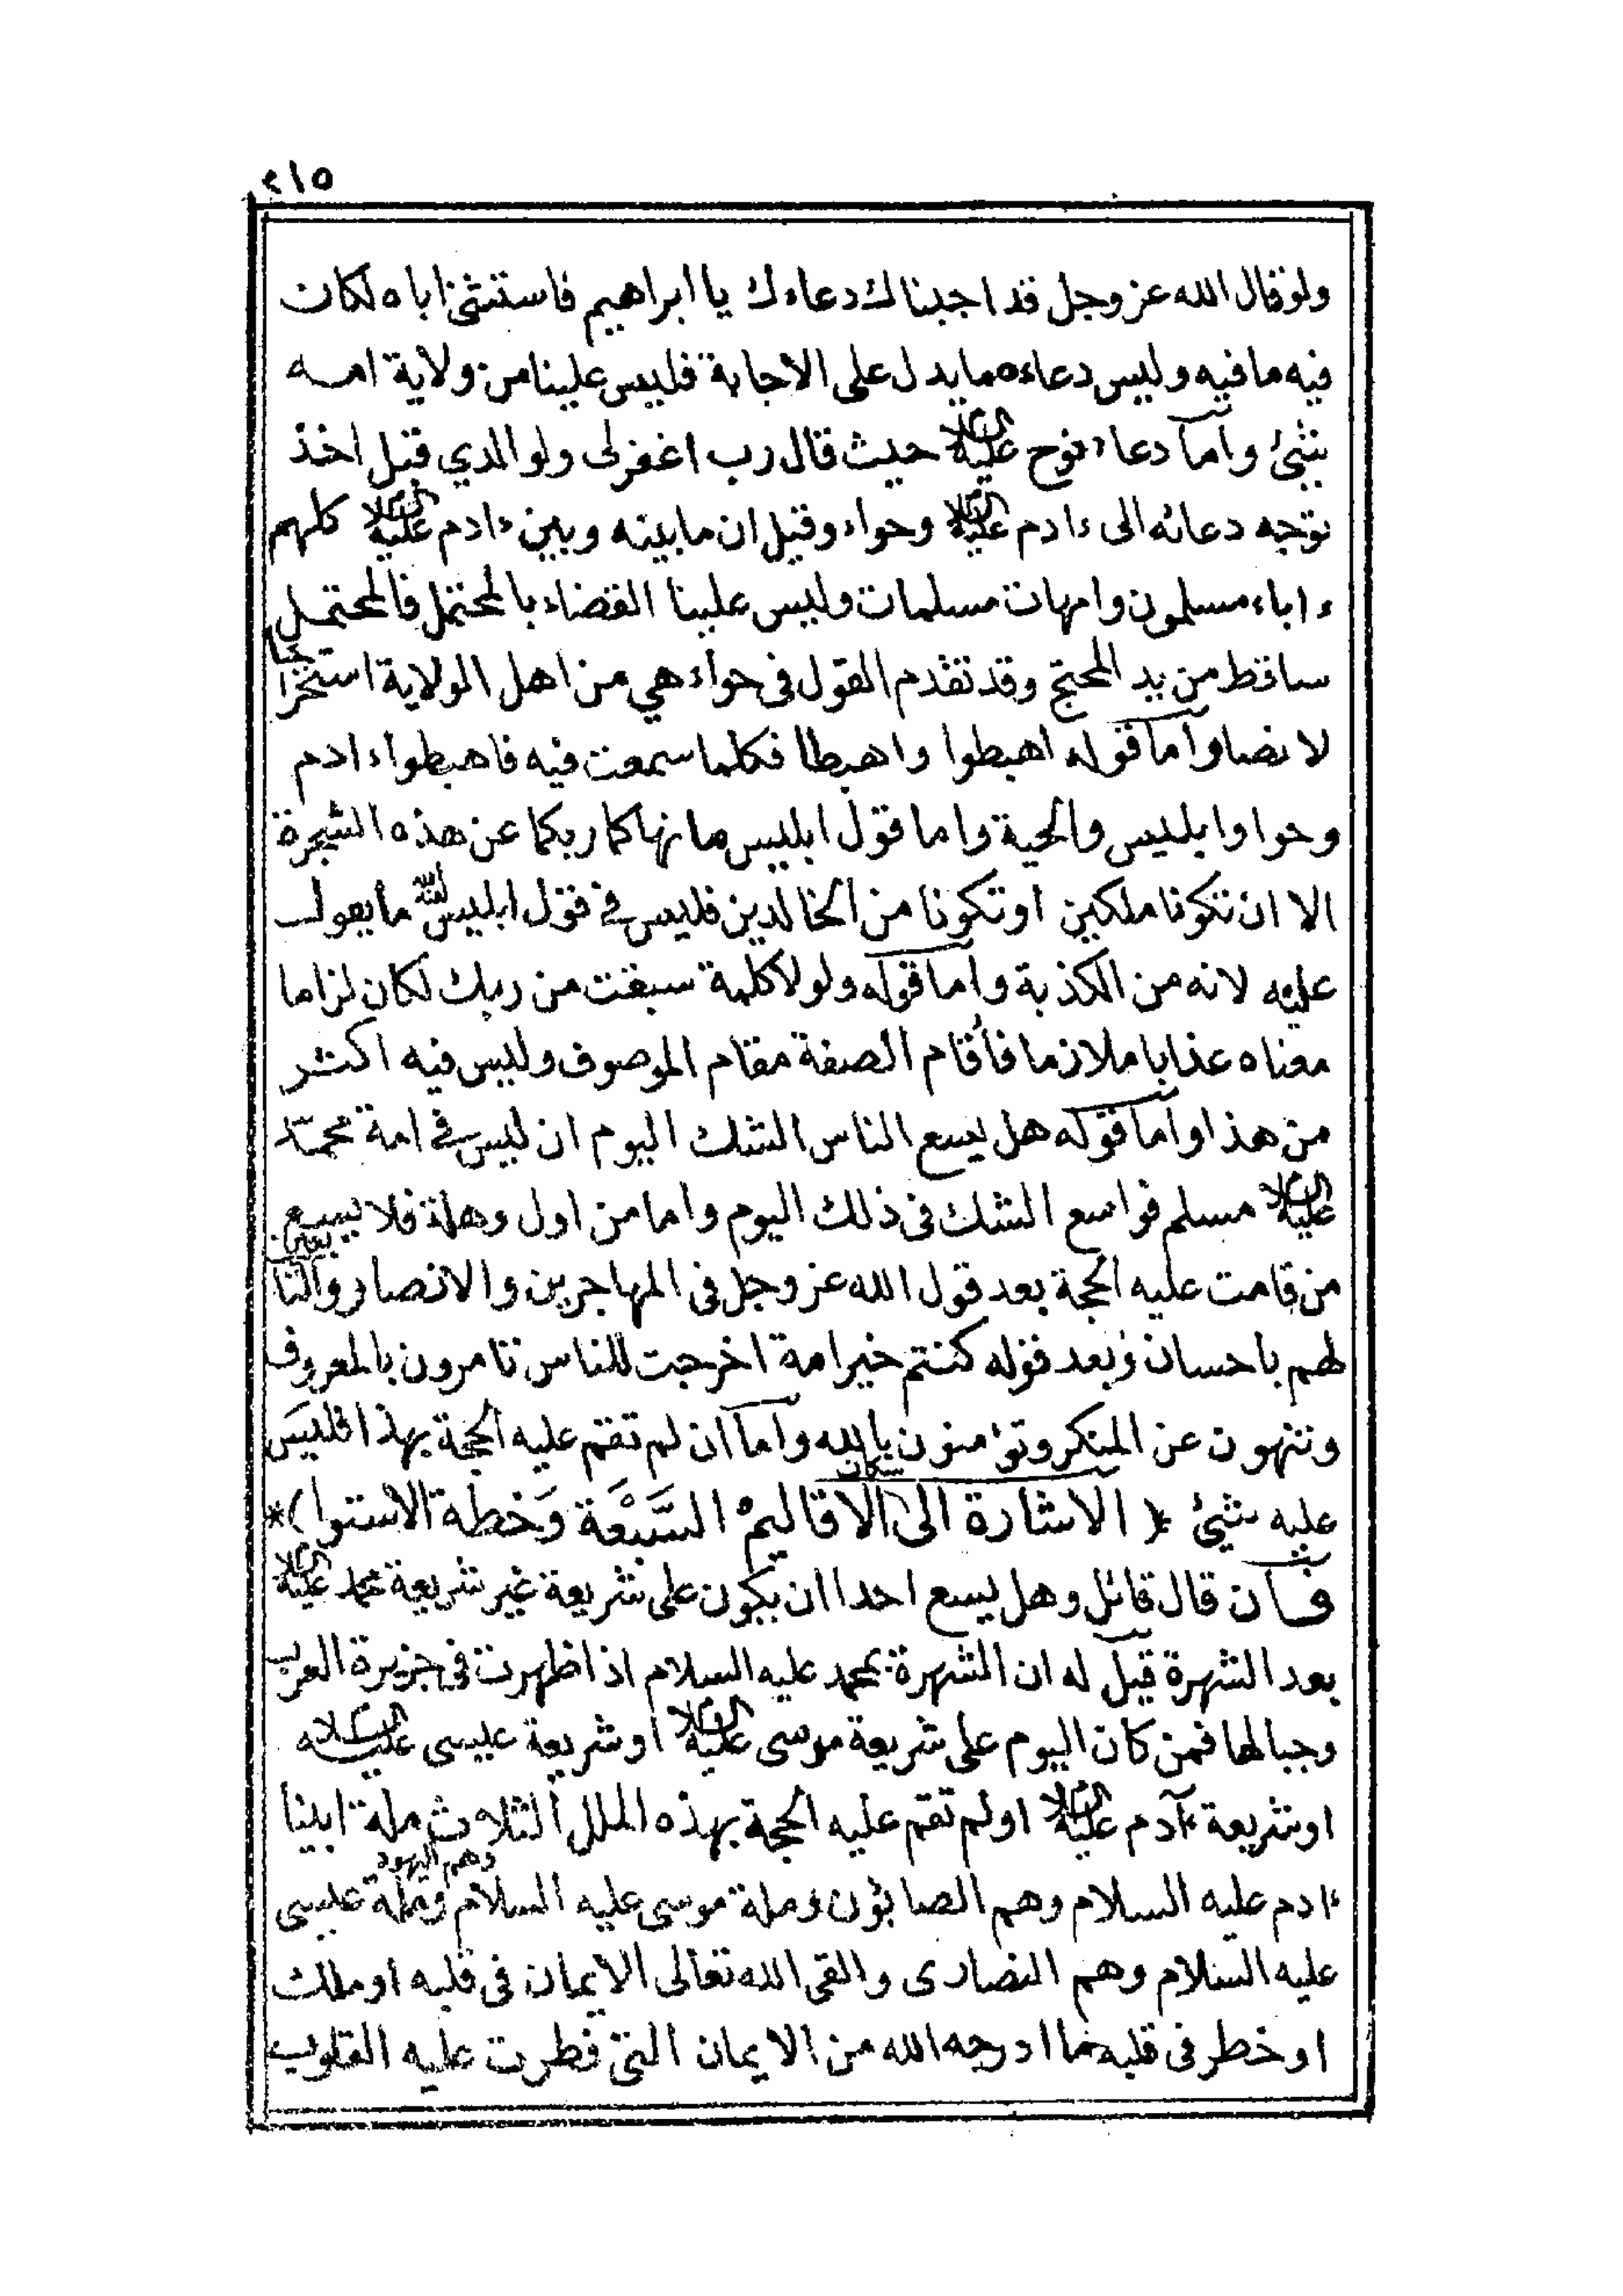 ٢١٥
ولو قال الله عز وجل قد اجبناك دعاءك يا ابراهيم فاستثنى اباه لكان
فيه ما فيه وليس دعاءه مما يدل على الاجابة فليس علينا من ولاية امه
شئ وأما دعاء نوح عليه السلام حيث قال رب اغفر لى ولوالدي قبل اخذ
توجه دعائه الى ءادم عليه السلام وحواء وقيل ان ما بينه وبين ءادم عليه السلام كلهم
ءاباء مسلمون وامهات مسلمات وليس علينا القضاء بالمحتمل فالمحتمل
ساقط من يد المحتج وقد تقدم القول فى حواء هي من اهل الولاية استخراجا
لا نصا وأما قوله اهبطوا واهبطا فكلما سمعت فيه فاهبطوا ءادم
وحوا وابليس والحية واما قول ابليس ما نهاكما ربكما عن هذه الشجرة
الا ان تكونا ملكين او تكونا من الخالدين فليس فى قول ابليس لعنه الله ما يعول
عليه لانه من الكذبة وأما قوله ولولا كلمة سبقت من ربك لكان لزاما
معناه عذابا ملازما فأقام الصفة مقام الموصوف وليس فيه اكثر
من هذا وأما قوله هل يسع الناس الشك اليوم ان ليس فى امة محمد
عليه السلام مسلم فواسع الشك فى ذلك اليوم واما من اول وهلة فلا يسع
من قامت عليه الحجة بعد قول الله عز وجل فى المهاجرين والانصار والتابعين
لهم باحسان وبعد قوله كنتم خير امة اخرجت للناس تامرون بالمعروف
وتنهون عن المنكر وتؤمنون بالله وأما ان لم تقم عليه الحجة بهذا فليس
عليه شئ * ( الاشارة الى سكان الاقاليم السبعة وخطة الاستوا ) *
فأن قال قائل وهل يسع احدا ان يكون على شريعة غير شريعة محمد عليه السلام
بعد الشهرة قيل له ان الشهرة بمحمد عليه السلام اذا ظهرت فى جزيرة العرب
وجبالها فمن كان اليوم على شريعة موسى عليه السلام او شريعة عيسى عليه السلام
او شريعة ءآدم عليه السلام او لم تقم عليه الحجة بهذه الملل الثلاث ملة ابينا
ءادم عليه السلام وهم الصابؤن وملة موسى عليه السلام وهم اليهود وملة عيسى
عليه السلام وهم النصارى والقى الله تعالى الايمان فى قلبه او ملك
او خطر فى قلبه مما ادرجه الله من الايمان التى فطرت عليه القلوب